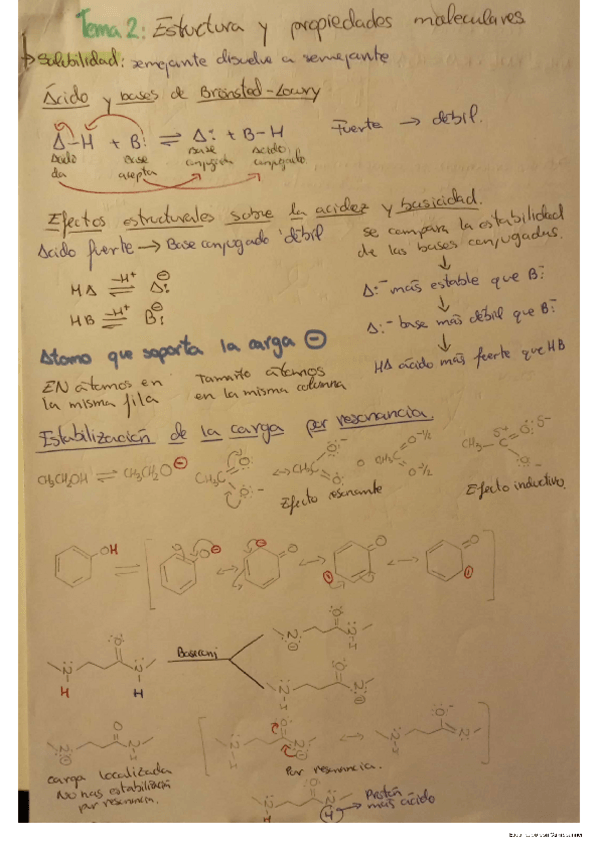 Tema 2: Estructura y propiedades moleculares
Solubilidad: semejante disuelve a semejante
Ácido y bases de Brönsted-Lowry
A-H + B: ⇌ A: + B-H Fuerte → débil.
Base acepta Base conjugada Acido conjugado
Efectos estructurales sobre la acidez y basicidad.
Acido fuerte → Base conjugado débil
se compara la estabilidad
de las bases conjugadas.
HA ⇌ A:⊖
-H⁺
HB ⇌ B:⊖
-H⁺
A:⁻ más estable que B:⁻
A:⁻ base más débil que B:⁻
HA ácido más fuerte que HB
Atomo que soporta la carga ⊖
EN átomos en
la misma fila
Tamaño átomos
en la misma columna
Estabilización de la carga por resonancia.
CH₃CH₂OH ⇌ CH₃CH₂O⊖
CH₃C CH₃C o CH₃C O⁻¹/² O⁻¹/² CH₃-C
Efecto resonante
Efecto inductivo.
OH
carga localizada
No hay estabilización
por resonancia.
Por resonancia.
Protón
más ácido